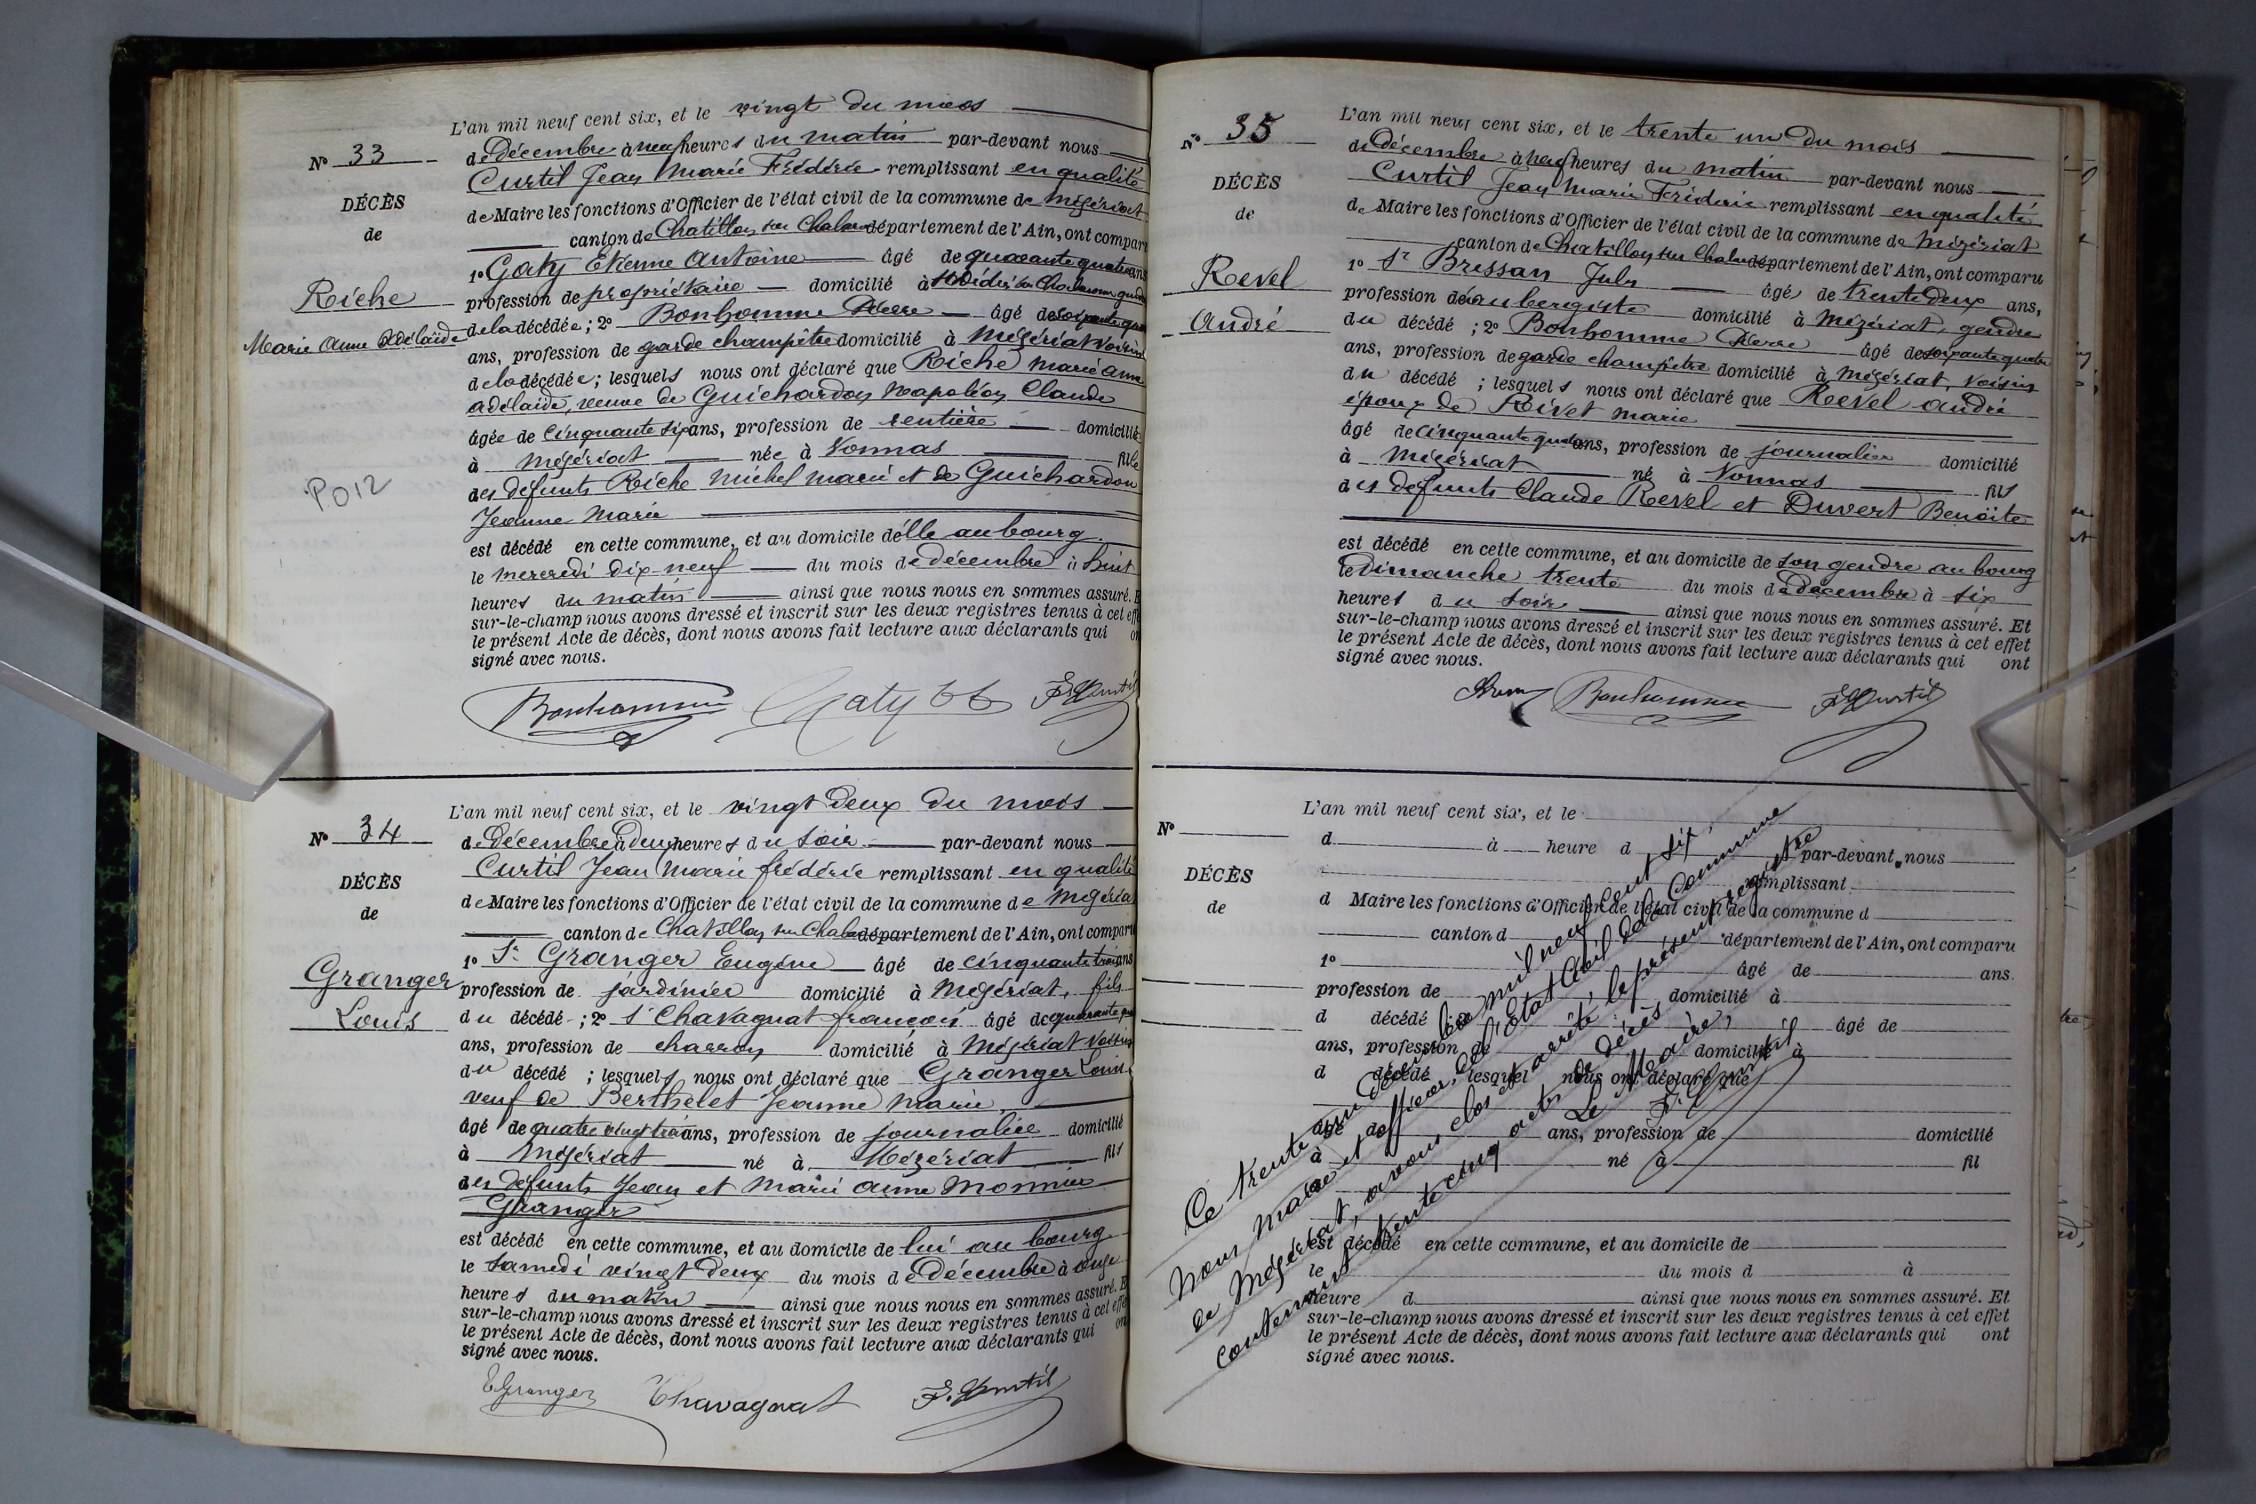 L'an mil neuf cent six, et le vingt du mois
N° 33
de Décembre à neuf heures du matin par-devant nous
Curtil Jean Marie Frédéric remplissant en qualité
DÉCÈS
de Maire les fonctions d'Officier de l'état civil de la commune de Mézériat
de
canton de Chatillon sur Chalaronne département de l'Ain, ont comparu
1° Gaty Etienne Antoine âgé de quarante quatre ans
Riche
profession de propriétaire domicilié à
Marie Anne Adélaïde
de la décédée; 2° Bonhomme Pierre âgé de soixante quatre
ans, profession de garde champêtre domicilié à Mézériat voisin
de la décédée; lesquels nous ont déclaré que Riche Marie Anne
Adélaïde, veuve de Guichardon Napoléon Claude
âgée de cinquante six ans, profession de rentière domiciliée
à Mézériat née à Vonnas fille
des défunts Riche Michel Marie et de Guichardon
P012
Jeanne Marie
est décédé en cette commune, et au domicile d'elle au bourg.
le mercredi dix neuf du mois de décembre à huit
heures du matin ainsi que nous nous en sommes assuré. E
sur-le-champ nous avons dressé et inscrit sur les deux registres tenus à cet effe
le présent Acte de décès, dont nous avons fait lecture aux déclarants qui on
signé avec nous.
Bonhomme Gaty F. Curtil
L'an mil neuf cent six, et le vingt deux du mois
N° 34
de Décembre à deux heures du soir par-devant nous
Curtil Jean Marie frédéric remplissant en qualité
DÉCÈS
de Maire les fonctions d'Officier de l'état civil de la commune de Mézériat
de
canton de Chatillon sur Chalaronne département de l'Ain, ont comparu
1° Sr Granger Eugène âgé de cinquante trois ans
Granger
profession de jardinier domicilié à Mézériat, fils
Louis
du décédé; 2° Sr Chavagnat françois âgé de quarante
ans, profession de charron domicilié à Mézériat voisin
du décédé; lesquels nous ont déclaré que Granger Louis
veuf de Berthelet Jeanne Marie
âgé de quatre vingt trois ans, profession de journalier domicilié
à Mézériat né à Mézériat fils
des défunts Jean et Marie Anne Monnier
Granger
est décédé en cette commune, et au domicile de lui au bourg
le samedi vingt deux du mois de décembre à onze
heures du matin ainsi que nous nous en sommes assuré. E
sur-le-champ nous avons dressé et inscrit sur les deux registres tenus à cet effe
le présent Acte de décès, dont nous avons fait lecture aux déclarants qui on
signé avec nous.
E Granger Chavagnat F. Curtil
L'an mil neuf cent six, et le trente un du mois
N° 35
de Décembre à neuf heures du matin par-devant nous
Curtil Jean Marie Frédéric remplissant en qualité
DÉCÈS
de Maire les fonctions d'Officier de l'état civil de la commune de Mézériat
de
canton de Chatillon sur Chalaronne département de l'Ain, ont comparu
1° Sr Bressan Jules âgé de trente deux ans,
Revel
profession d'aubergiste domicilié à Mézériat, gendre
André
du décédé; 2° Bonhomme Pierre âgé de soixante quatre
ans, profession de garde champêtre domicilié à Mézériat, voisin
du décédé; lesquels nous ont déclaré que Revel André
époux de Rivet Marie
âgé de cinquante quatre ans, profession de journalier domicilié
à Mézériat né à Vonnas fils
des défunts Claude Revel et Duvert Benoîte
est décédé en cette commune, et au domicile de son gendre au bourg
le Dimanche trente du mois de Décembre à six
heures du soir ainsi que nous nous en sommes assuré. Et
sur-le-champ nous avons dressé et inscrit sur les deux registres tenus à cet effet
le présent Acte de décès, dont nous avons fait lecture aux déclarants qui ont
signé avec nous.
Bonhomme F. Curtil
L'an mil neuf cent six, et le
N°
d à heure d par-devant nous
remplissant
DÉCÈS
d Maire les fonctions d'Officier de l'état civil de la commune d
de
canton d département de l'Ain, ont comparu
1° âgé de ans.
profession de domicilié à
d décédé 2° âgé de
ans, profession de domicilié à
d décédé lesquel nous ont déclaré que
âgé de ans, profession de domicilié
à né à fil
de
est décédé en cette commune, et au domicile de
le du mois d à
heure d ainsi que nous nous en sommes assuré. Et
sur-le-champ nous avons dressé et inscrit sur les deux registres tenus à cet effet
le présent Acte de décès, dont nous avons fait lecture aux déclarants qui ont
signé avec nous.
Ce trente un Décembre mil neuf cent six,
nous Maire et officier de l'Etat Civil de la Commune
de Mézériat, avons clos et arrêté le présent registre
contenant trente cinq actes de décès
Le Maire,
F. Curtil